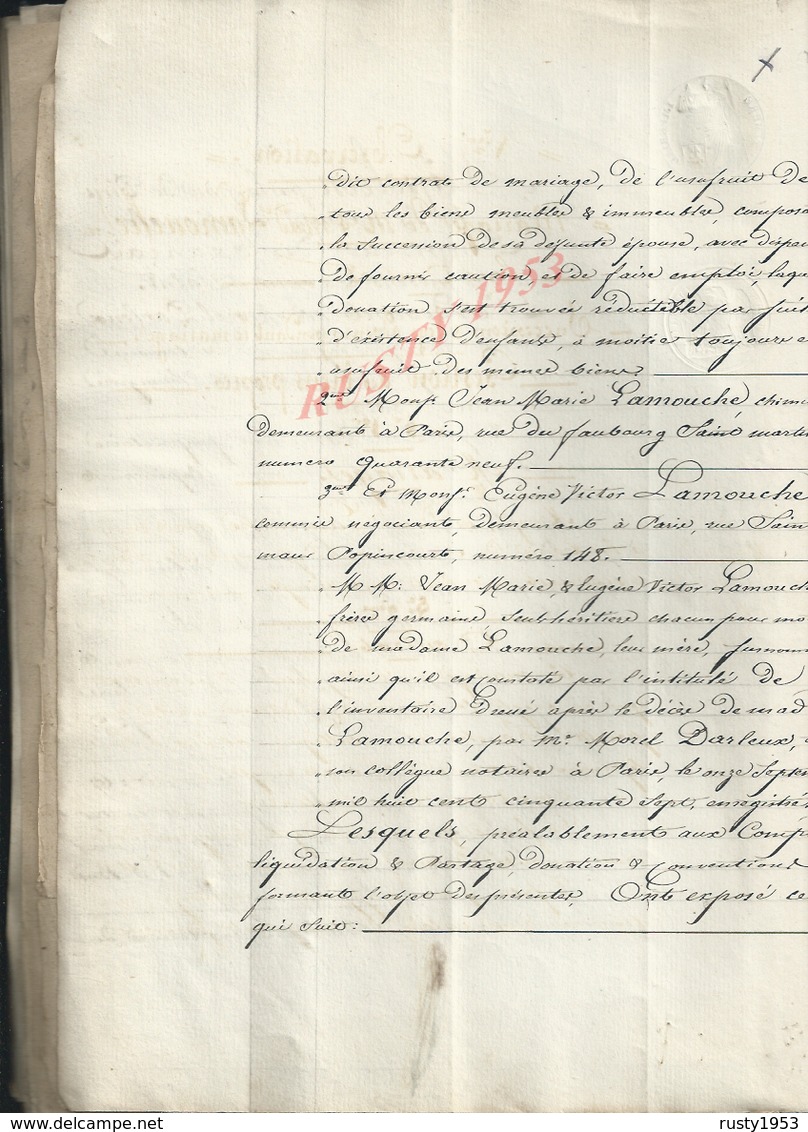 dit contrat de mariage, de l'usufruit de
tous les biens meubles & immeubles, composa
la succession de sa défunte épouse, avec dispen
de fournir caution, et de faire emploi, laque
donation s'est trouvée réductible par suit
d'existence d'enfants, à moitié toujours e
usufruit des mêmes biens.
2ent Monsr. Jean Marie Lamouche, chimi
demeurant à Paris, rue du faubourg Saint martin
numéro quarante neuf.
3ent Et Monsr. Eugène Victor Lamouche
commis négociant, demeurant à Paris, rue Sain
maur Popincourt, numéro 148.
M M. Jean Marie, & Eugène Victor Lamouch
frères germains, seuls héritiers chacun pour mo
de madame Lamouche, leur mère, surnomm
ainsi qu'il est constaté par l'intitulé de
l'inventaire dressé après le décès de mad
Lamouche, par Me. Morel Darleux,
son collègue notaires à Paris, le onze Septem
mil huit cent cinquante sept, enregistré
Lesquels, préalablement aux Comp
liquidation & Partage, donation & Conventions
formant l'objet des présentes, Ont exposé ce
qui suit:
RUSTY 1953
rusty1953